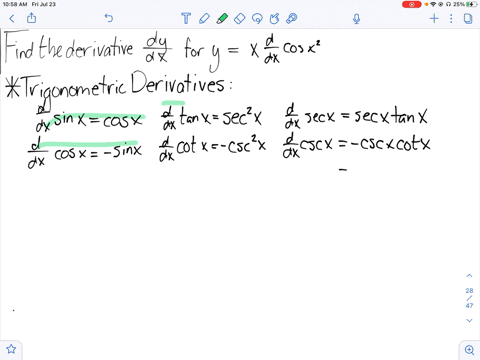 10:58 AM Fri Jul 23
25%
Find the derivative dy/dx for y = x d/dx cos x²
*Trigonometric Derivatives:
d/dx sin x = cos x d/dx tan x = sec² x d/dx sec x = sec x tan x
d/dx cos x = -sin x d/dx cot x = -csc² x d/dx csc x = -csc x cot x
28
/
47